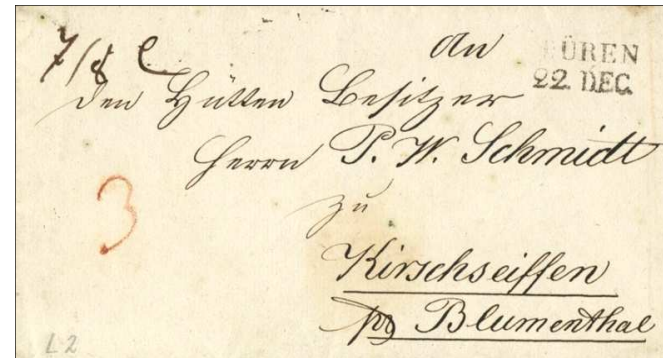 7/8
An
ÜREN
22. DEC.
den Hütten Besitzer
Herrn P. W. Schmidt
zu
3
Kirschseiffen
Blumenthal
L2